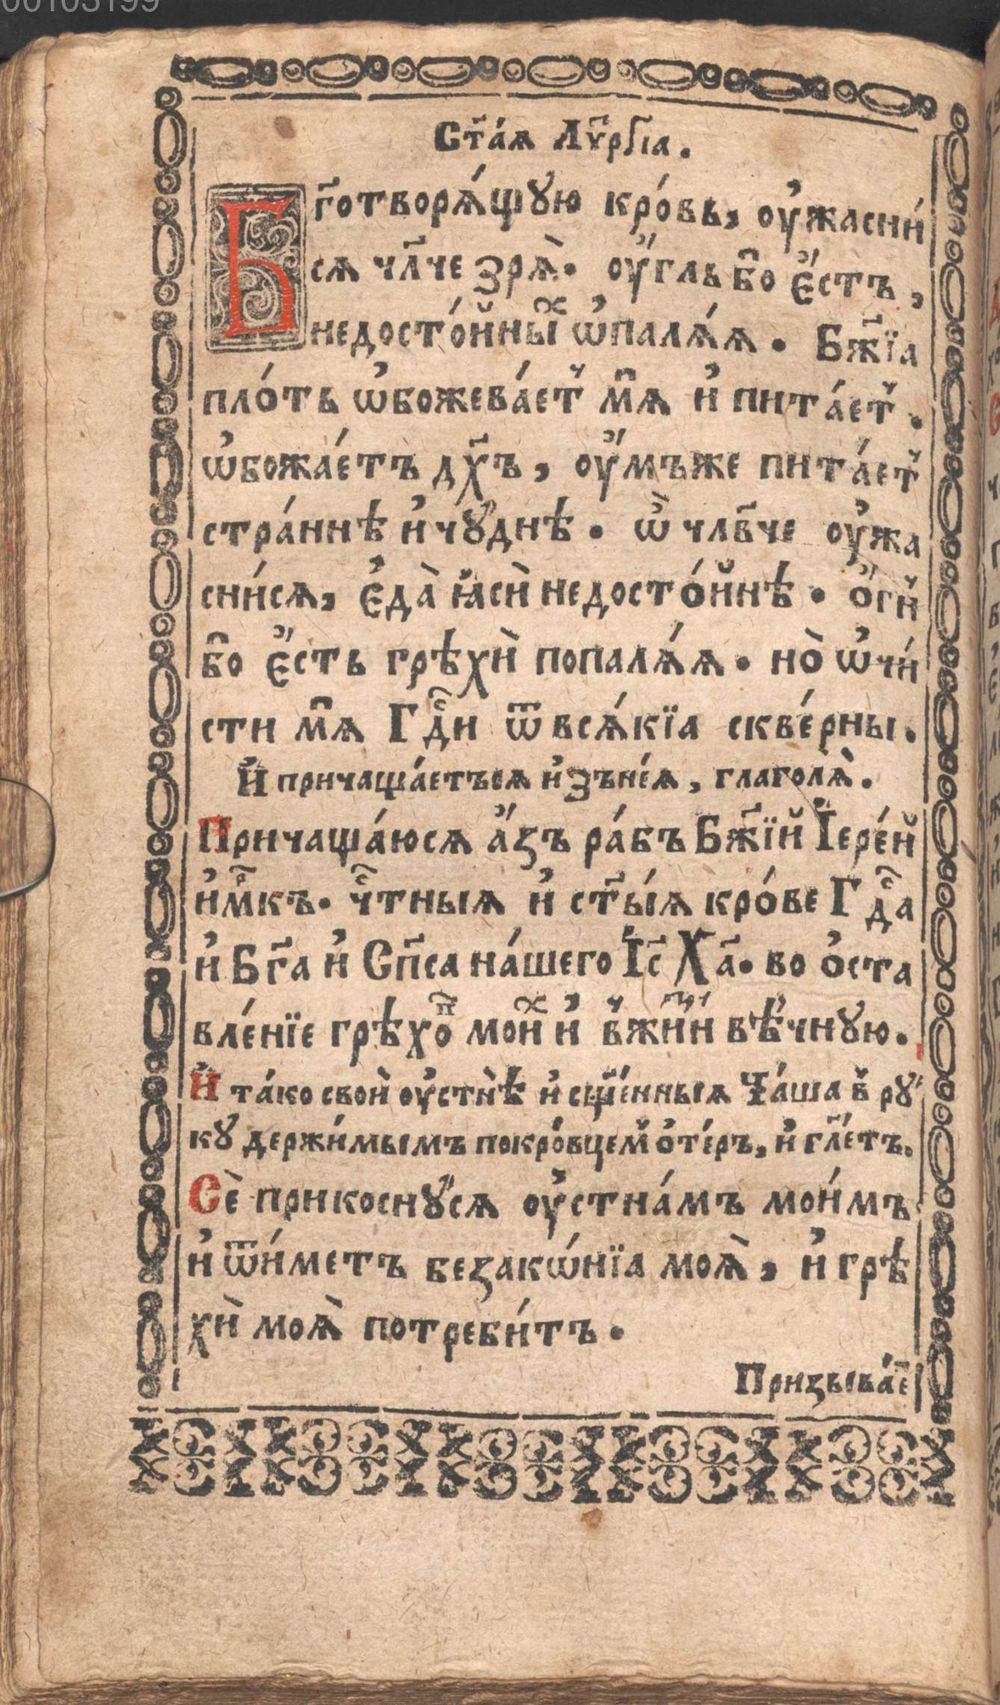 00103199
Ст҃а́ѧ Лѵ҃рг҃іа.
Бг҃отворѧ́щꙋю кро́вь, оу҆жасни́
сѧ чл҃че зрѧ̀. оу҆́гль бо є҆́стъ,
недосто́йныⷯ ѡ҆палѧ́ѧ. Бж҃їа
пло́ть ѡ҆божева́еⷮ мѧ и҆ пита́еⷮ.
ѡ҆божа́етъ дх҃ъ, оу҆́мъже пита́еⷮ
стра́ннѣ и҆ чꙋ́днѣ. ѽ члв҃че оу҆жа
сни́сѧ, є҆да̀ ꙗ҆сѝ недосто́йнѣ. ѻ҆́гн҃
бо є҆́сть грѣхѝ попалѧ́ѧ. но̀ ѡ҆чи́
сти мѧ Гдⷭ҇и ѿ всѧ́кїа скве́рны.
И҆ причаща́етъсѧ и҆зъ неѧ́, глаголѧ̀.
Причаща́юсѧ а҆́зъ ра́бъ Бж҃їй І҆ере́й
и҆м҃къ. чⷭ҇тныѧ и҆ ст҃ы́ѧ кро́ве Гдⷭ҇а
и҆ Бг҃а и҆ Сп҃са на́шего І҆с҃ Ха҃. во ѻ҆ста
вле́нїе грѣхоⷡ҇ моиⷯ и҆ в жи́ⷥни вѣ́чнꙋю.
И҆ та́ко своѝ оу҆стнѣ̀ и҆ сщ҃е́нныѧ Ча́ша в рꙋ
кꙋ держи́мымъ покро́вцеⷨ ѻ҆те́ръ, и҆ гл҃етъ.
Сѐ прикоснꙋ́сѧ оу҆стна́мъ мои́мъ
и҆ ѿи́метъ беззакѡ́нїа моѧ̀, и҆ грѣ
хѝ моѧ̀ потреби́тъ.
Призыва́еⷮ